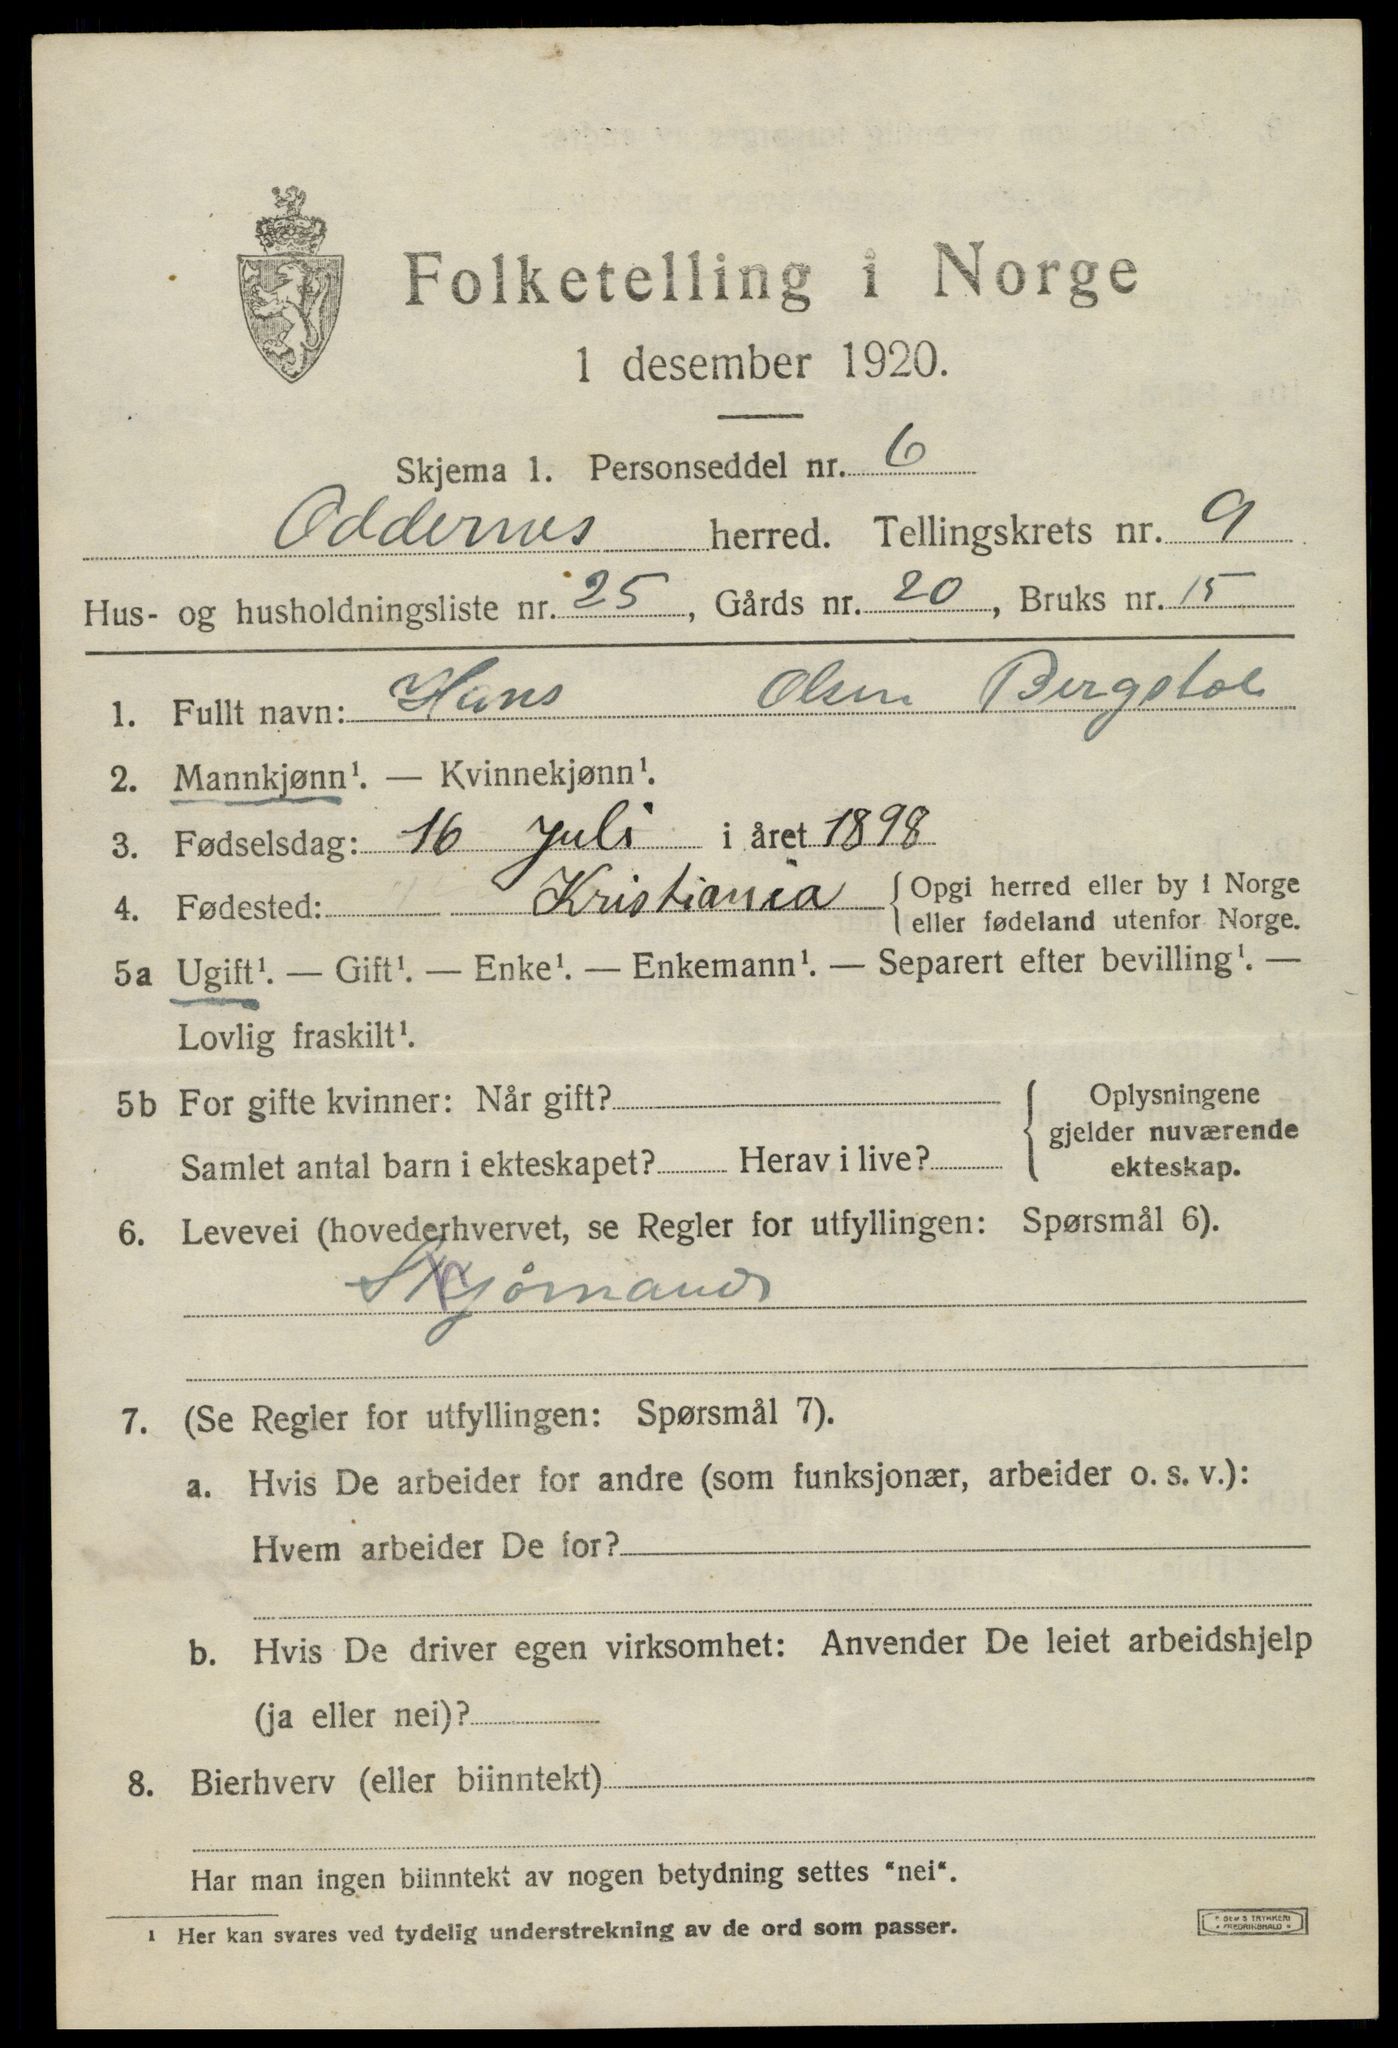 Folketelling i Norge
1 desember 1920.
Skjema 1. Personseddel nr. 6
Oddernes herred. Tellingskrets nr. 9
Hus- og husholdningsliste nr. 25, Gårds nr. 20, Bruks nr. 15
1. Fullt navn: Hans Olsen Bergstøl
2. Mannkjønn¹. — Kvinnekjønn¹.
3. Fødselsdag: 16 Juli i året 1898
4. Fødested: Kristiania { Opgi herred eller by i Norge
eller fødeland utenfor Norge.
5a Ugift¹. — Gift¹. — Enke¹. — Enkemann¹. — Separert efter bevilling¹. —
Lovlig fraskilt¹.
5b For gifte kvinner: Når gift? { Oplysningene
gjelder nuværende
Samlet antal barn i ekteskapet? Herav i live? ekteskap.
6. Levevei (hovederhvervet, se Regler for utfyllingen: Spørsmål 6).
Sjømand
7. (Se Regler for utfyllingen: Spørsmål 7).
a. Hvis De arbeider for andre (som funksjonær, arbeider o. s. v.):
Hvem arbeider De for?
b. Hvis De driver egen virksomhet: Anvender De leiet arbeidshjelp
(ja eller nei)?
8. Bierhverv (eller biinntekt)
Har man ingen biinntekt av nogen betydning settes "nei".
¹ Her kan svares ved tydelig understrekning av de ord som passer.